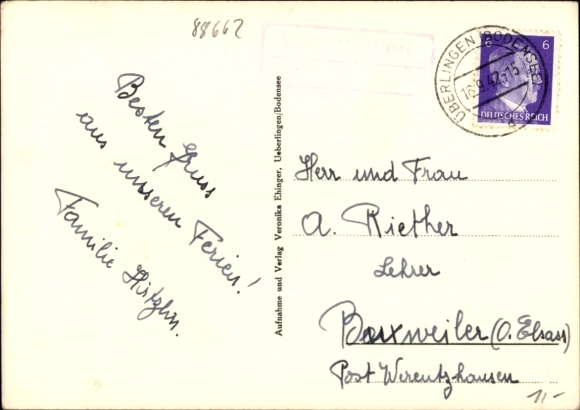 88662
ÜBERLINGEN (BODENSEE)
16.9.42.-15
6 6
DEUTSCHES REICH
Besten Gruss
aus unseren Ferien!
Familie
Aufnahme und Verlag Veronika Ehinger, Ueberlingen/Bodensee
Herr und Frau
A. Riether
Lehrer
Boxweiler (O. Elsass)
Post Werentzhausen
11-